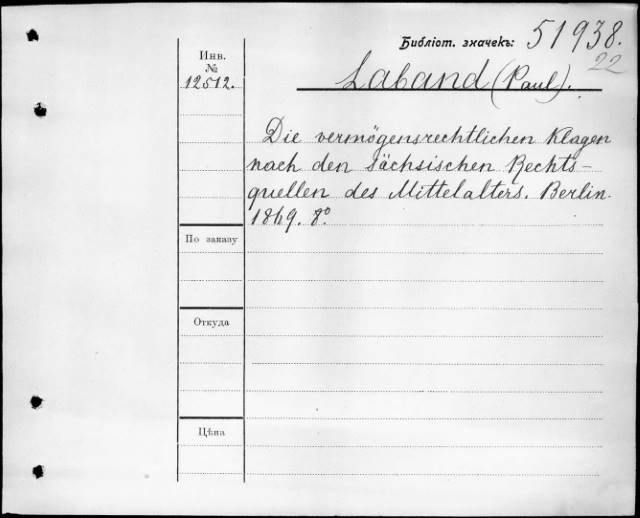 Библіот. значекъ: 51938.
22
Инв.
№
12512.
Laband (Paul).
Die vermögensrechtlichen Klagen
nach den sächsischen Rechts-
quellen des Mittelalters. Berlin.
1869. 8º.
По заказу
Откуда
Цѣна